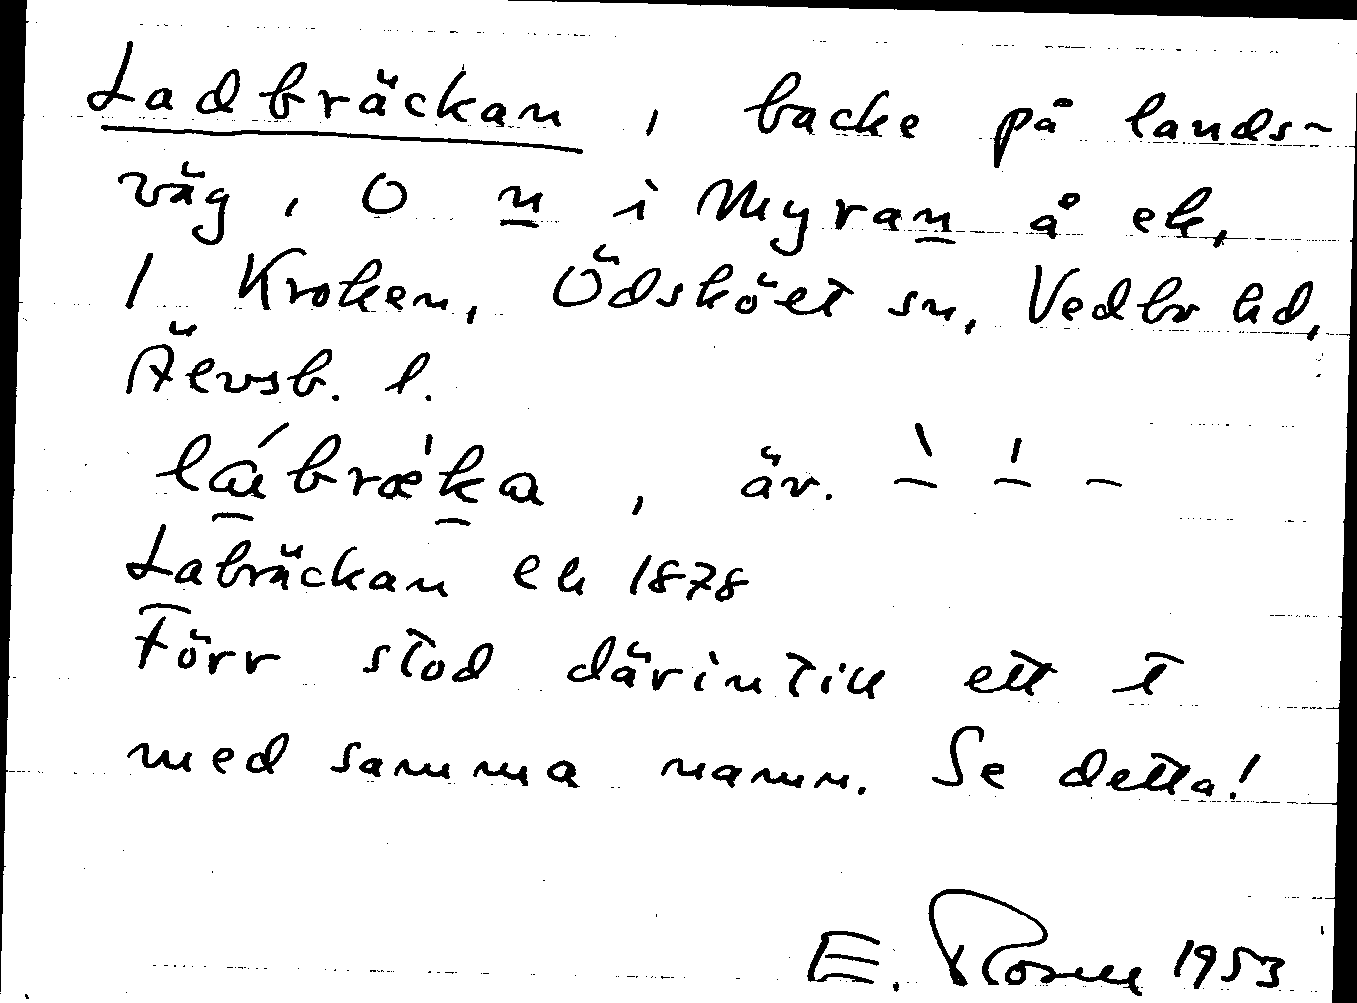 Ladbräckan, backe på lands-
väg, O n i Myran å ek,
1 Kroken, Ödsköet sn, Vedbo hd,
Älvsb. l.
lábræ̍ka, äv. – – –
Labräckan ek 1878
Förr stod därintill ett t
med samma namn. Se detta!
E. 1953